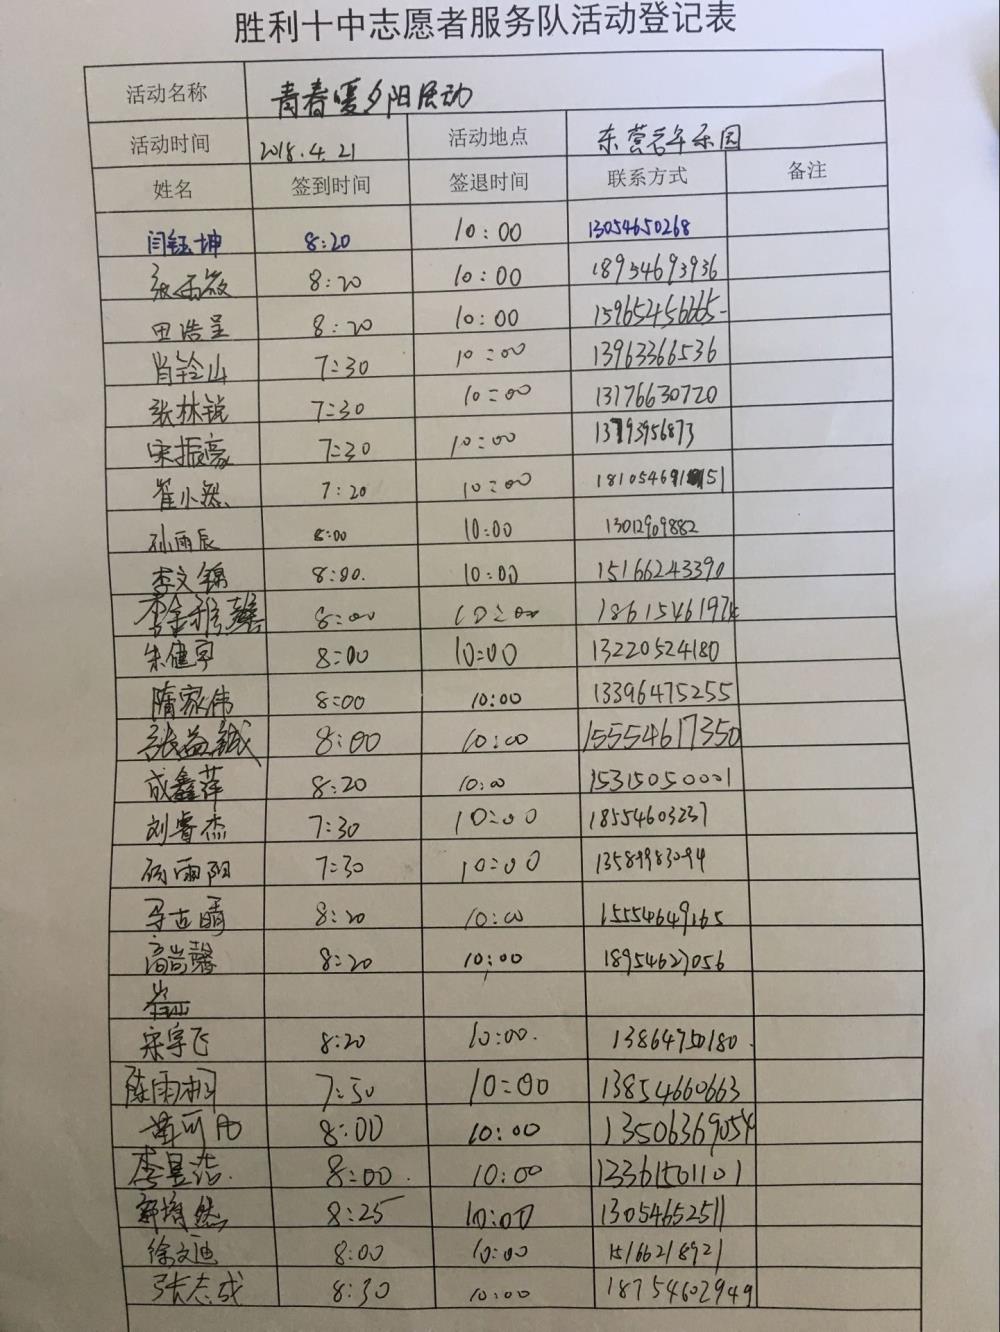 胜利十中志愿者服务队活动登记表
活动名称 青春暖夕阳活动
活动时间 2018.4.21 活动地点 东营老年乐园
姓名 签到时间 签退时间 联系方式 备注
闫钰坤 8:20 10:00 13054650268
8:20 10:00 18954693936
田浩呈 8:20 10:00
肖铃山 7:30 10:00 13963366536
张林锐 7:30 10:00 13176630720
宋振豪 7:30 10:00 13793956873
崔小然 7:20 10:00
孙雨辰 8:00 10:00 13012909882
李文锦 8:00. 10:00 15166243390
8:00 10:00 18615461974
朱健宇 8:00 10:00 13220524180
隋家伟 8:00 10:00 13396475255
张益铖 8:00 10:00 15554617350
成鑫萍 8:20 10:00 15315050001
刘睿杰 7:30 10:00 18554603237
7:30 10:00 13589983094
8:20 10:00 15554649165
高尚馨 8:20 10:00 18954627056
宋宇飞 8:20 10:00. 13864750180.
陈雨桐 7:50 10:00 13854660663
8:00 10:00 13506369054
李昱洁. 8:00. 10:00 13361501101
8:25 10:00 13054652511
徐文迪 8:00 10:00 15166218921
张志成 8:30 10:00 18754602949